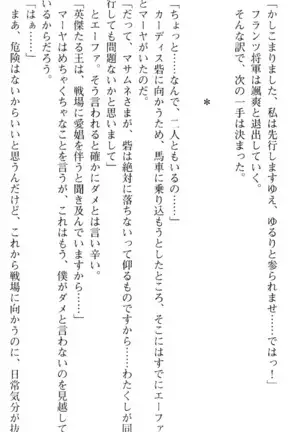 「かしこまりました、私は先行しますゆえ、ゆるりと参られませ……ではっ！」
フランツ将軍は颯爽と退出していく。
そんな訳で、次の一手は決まった。
＊
「ちょっと……なんで、二人ともいるの……」
カーディス砦に向かうため、馬車に乗り込もうとしたところ、そこにはすでにエーファ
とマーヤがいたのだ。
「だって、マサムネさまが、砦は絶対に落ちないって仰るものですから……わたくしが同
行しても問題ないかと思いまして」
とエーファ。そう言われると確かにダメとは言い辛い。
「英傑たる王は、戦場に愛妾を伴うと聞き及んでいますから」
マーヤはめちゃくちゃなことを言うが、これはもう、僕がダメと言わないのを見越して
いるからだろう。
「はぁ……」
まあ、危険はないからいいと思うんだけど、これから戦場に向かうのに、日常気分が抜